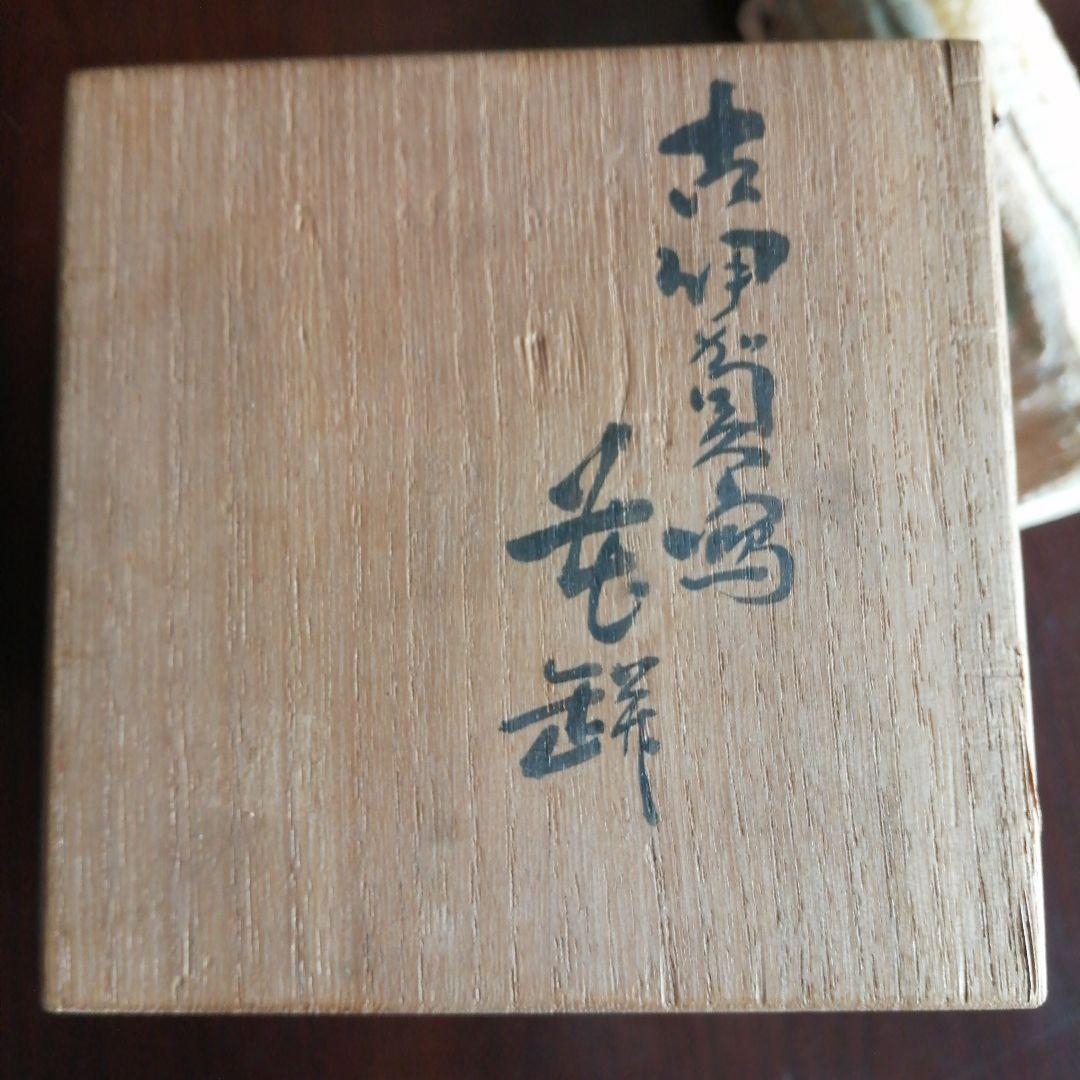 古伊賀写
花缾